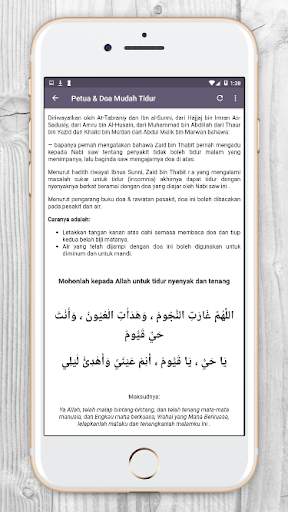 1:38
Petua & Doa Mudah Tidur
Diriwayatkan oleh At-Tabrany dan Ibn al-Sunni, dari Hajjaj bin Imran As-
Sadusiy, dari Amru bin Al-Husain, dari Muhammad bin Abdillah dari Thaur
bin Yazid dari Khalid bin Ma'dan dari Abdul Malik bin Marwan bahawa:
– bapanya pernah mengatakan bahawa Zaid bin Thabit pernah mengadu
kepada Nabi saw tentang penyakit tidak boleh tidur malam yang
menimpanya, lalu baginda saw mengajarnya doa di atas.
Menurut hadith riwayat Ibnus Sunni, Zaid bin Thabit r.a yang mengalami
masalah sukar untuk tidur (insomnia) akhirnya dapat tidur dengan
nyenyaknya berkat beramal dengan doa yang diajar oleh Nabi saw ini.
Menurut pengarang buku doa & rawatan pesakit, doa ini boleh dibacakan
pada pesakit dan air.
Caranya adalah:
• Letakkan tangan kanan atas dahi semasa membaca doa dan tiup
kedua belah biji matanya.
• Air yang telah dijampi dengan doa ini boleh digunakan untuk
diminum dan untuk mandi.
Mohonlah kepada Allah untuk tidur nyenyak dan tenang
اَللَّهُمَّ غَارَتِ النُّجُومُ ، وَهَدَأَتِ الْعُيُونُ ، وَأَنْتَ
حَيٌّ قَيُّومٌ
يَا حَيُّ ، يَا قَيُّومُ ، أَنِمْ عَيْنِيْ وَأَهْدِئْ لَيْلِي
Maksudnya:
Ya Allah, telah malap bintang-bintang, dan telah tenang mata-mata
manusia, dan Engkau maha berkuasa, Wahai yang Maha Berkuasa,
lelapkanlah mataku dan tenangkanlah malamku ini .